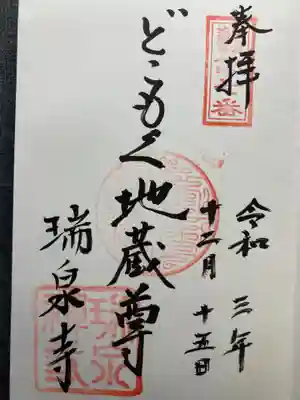 奉拝
令和三年
十二月十五日
どこもく地蔵尊
瑞泉寺